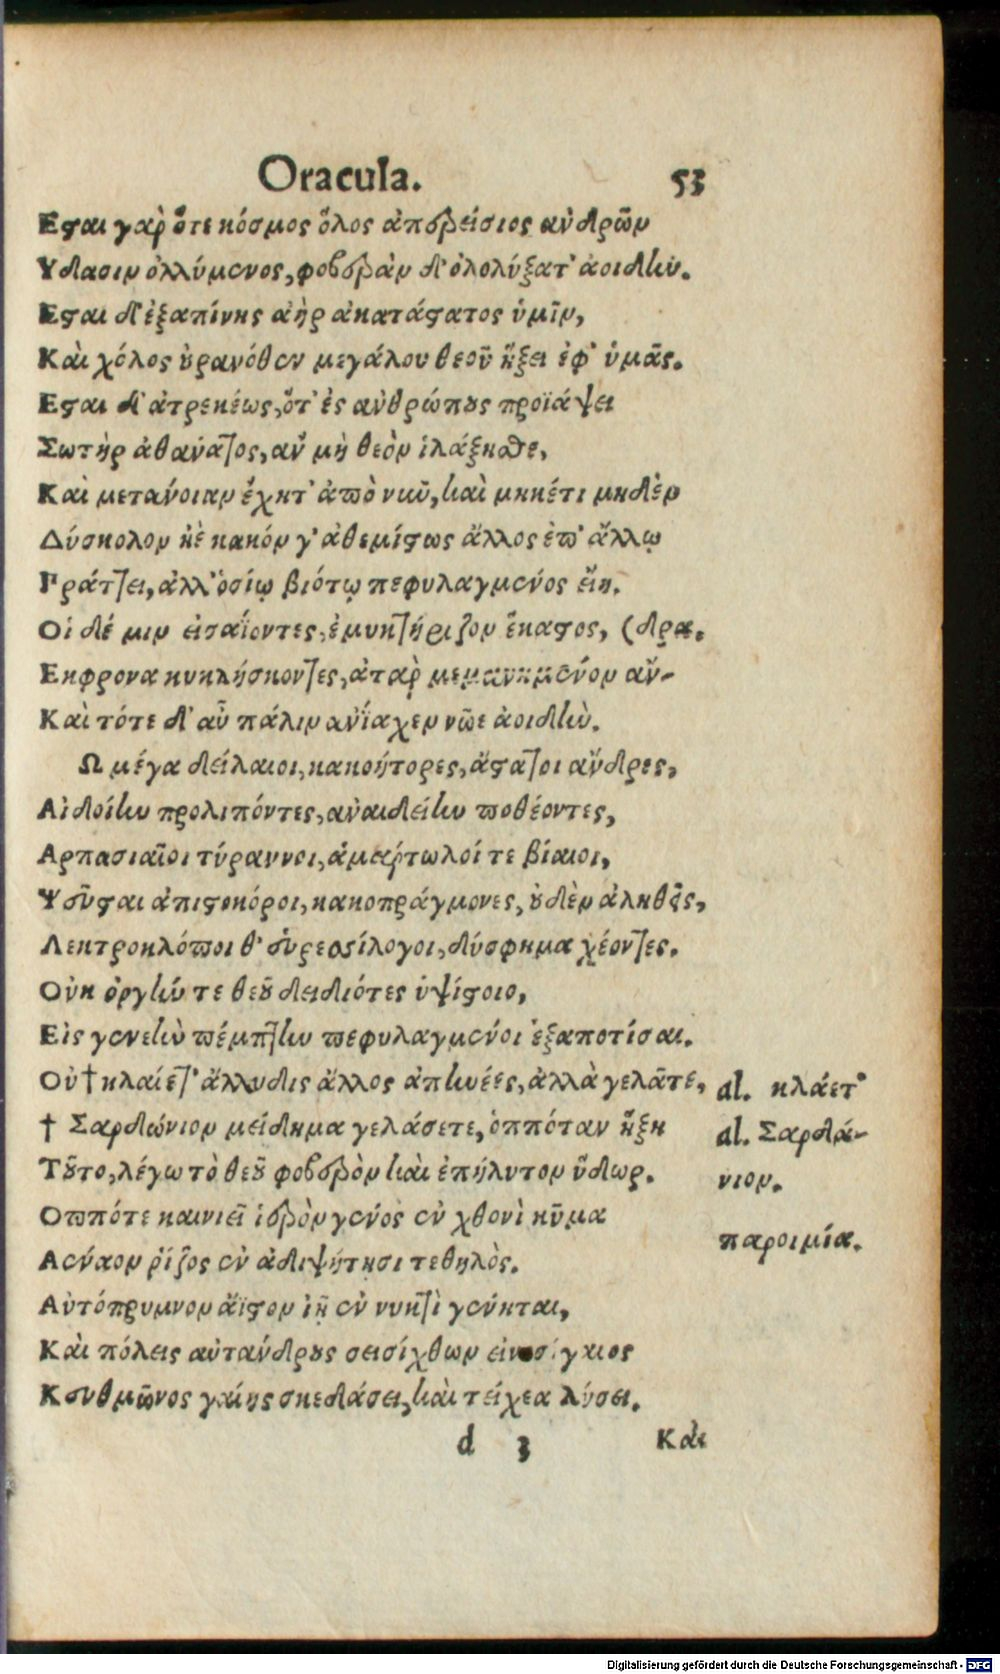 Oracula. 53
Εϛαι γὰρ ὅτε κόσμος ὅλος ἀπειρέσιος ἀνδρῶν
Υδασιν ὀλλύμενος, φοβερὰν δ' ὀλολύξατ' ἀοιδίω.
Εϛαι δ' ἐξαπίνης ἀὴρ ἀκατάϛατος ὑμῖν,
Καὶ χόλος ȣρανόθεν μεγάλου θεοῦ ἥξει ἐφ' ὑμᾶς.
Εϛαι δ' ἀτρεκέως, ὅτ' ἐς ἀνθρώπȣς προϊάψει
Σωτὴρ ἀθανάτος, ἂν μὴ θεὸν ἱλάξησθε,
Καὶ μετάνοιαν ἔχητ' ἀπὸ νιῦ, καὶ μηκέτι μηδὲν
Δύσκολον ἠὲ κακόν γ' ἀθεμίϛως ἄλλος ἐπ' ἄλλῳ
Πράττει, ἀλλ' ὁσίῳ βιότῳ πεφυλαγμένος εἴη.
Οἱ δέ μιν εἰσαΐοντες, ἐμυκτήριζον ἕκαϛος, (δρα.
Εκφρονα κικλήσκοντες, ἀτὰρ μεμανημένον ἄν-
Καὶ τότε δ' αὖ πάλιν ἀνΐαχεν νῶε ἀοιδίω.
Ω μέγα δείλαιοι, κακοήτορες, ἄϛατοι ἄνδρες,
Αἰδοίίω προλιπόντες, ἀναιδείίω ποθέοντες,
Αρπασιαῖοι τύραννοι, ἁμαρτωλοί τε βίαιοι,
Ψεῦϛαι ἀπιϛοκόροι, κακοπράγμονες, ȣδὲν ἀληθεῖς,
Λεκτροκλόποι θ' εὑρεσίλογοι, δύσφημα χέοντες.
Οὐκ ὀργίώ τε θεȣ͂ δειδιότες ὑψίϛοιο,
Εἰς γενείω πέμπτίω πεφυλαγμένοι ἐξαποτίσαι.
Οὐ † κλαίετ' ἄλλυδις ἄλλος ἀπίωέες, ἀλλὰ γελᾶτε,
† Σαρδώνιον μείδημα γελάσετε, ὁππόταν ἥξῃ
Τȣ͂το, λέγω τὸ θεȣ͂ φοβερὸν καὶ ἐπήλυτον ὕδωρ.
Οππότε καινιεῖ ἱερὸν γένος ἐν χθονὶ κῦμα
Αέναον ῥίζος ἐν ἀδιψήτησι τεθηλὸς.
Αὐτόπρυμνον ἄϊϛον ἰῇ ἐν νυκτὶ γένηται,
Καὶ πόλεις αὐτάνδρȣς σεισίχθων εἰνοσίγαιος
Κευθμῶνος γαίης σκεδάσει, καὶ τείχεα λύσει.
d 3 Καὶ
al. κλάετ'
al. Σαρδά-
νιον.
παροιμία.
Digitalisierung gefördert durch die Deutsche Forschungsgemeinschaft - DFG